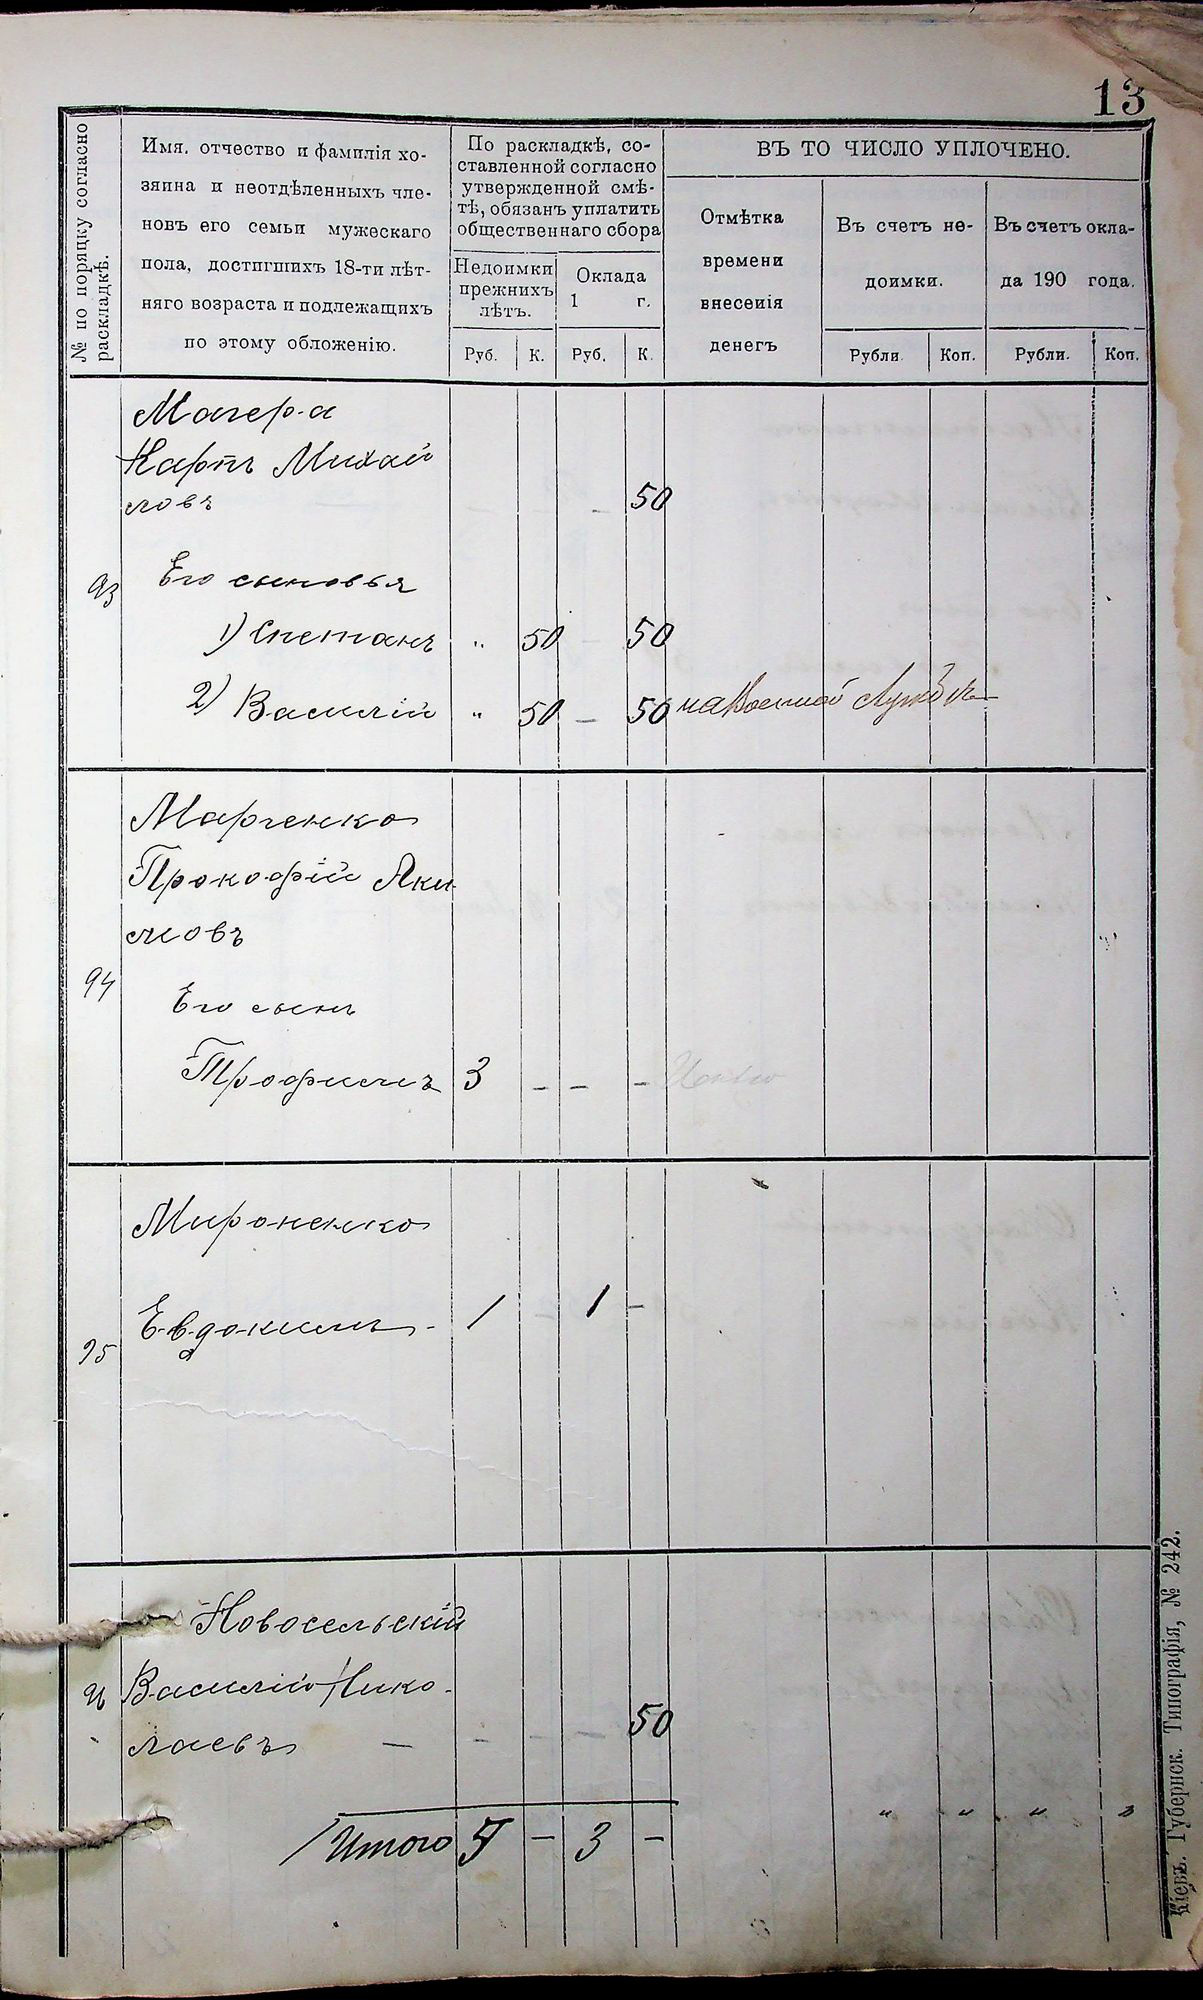 13
№ по порядку согласно
раскладкѣ.
Имя, отчество и фамилія хо-
зяина и неотдѣленныхъ чле-
новъ его семьи мужескаго
пола, достигшихъ 18-ти лѣт-
няго возраста и подлежащихъ
по этому обложенію.
По раскладкѣ, со-
ставленной согласно
утвержденной смѣ-
тѣ, обязанъ уплатить
общественнаго сбора
Недоимки
прежнихъ
лѣтъ.
Оклада
1 г.
Руб. К. Руб. К.
ВЪ ТО ЧИСЛО УПЛОЧЕНО.
Отмѣтка
времени
внесенія
денегъ
Въ счетъ не-
доимки.
Въ счетъ окла-
да 190 года.
Рубли. Коп. Рубли. Коп.
Магера
Карпъ Михай
ловъ - - - 50
93 Его сыновья
1) Степанъ " 50 - 50
2) Василій " 50 - 50 на Военной Службѣ
Марченко
Прокофій Яки
мовъ
94 Его сынъ
Трофимъ 3 - - -
Мироненко
95 Евдокимъ - 1 - 1 -
Новосельскій
Василій Нико-
лаевъ - - - - 50
Итого 5 - 3 - " " " "
Кіевъ. Губернск. Типографія, № 242.